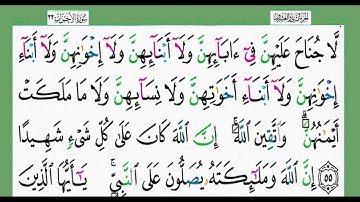 الجزء الثاني والعشرون سورة الأحزاب ٣٣
لَّا جُنَاحَ عَلَيْهِنَّ فِىٓ ءَابَآئِهِنَّ وَلَآ أَبْنَآئِهِنَّ وَلَآ إِخْوَٰنِهِنَّ وَلَآ أَبْنَآءِ
إِخْوَٰنِهِنَّ وَلَآ أَبْنَآءِ أَخَوَٰتِهِنَّ وَلَا نِسَآئِهِنَّ وَلَا مَا مَلَكَتْ
أَيْمَٰنُهُنَّ ۗ وَٱتَّقِينَ ٱللَّهَ ۚ إِنَّ ٱللَّهَ كَانَ عَلَىٰ كُلِّ شَىْءٍ شَهِيدًا
۝٥٥ إِنَّ ٱللَّهَ وَمَلَٰٓئِكَتَهُۥ يُصَلُّونَ عَلَى ٱلنَّبِىِّ ۚ يَٰٓأَيُّهَا ٱلَّذِينَ